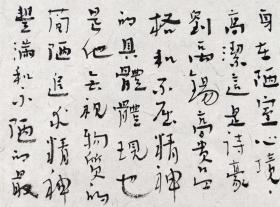 身在陋室心境
高洁這是诗豪
劉禹锡高贵品
格和不屈精神
的具體體現也
是他无視物質的
简陋追求精神
豐满和不陋的最